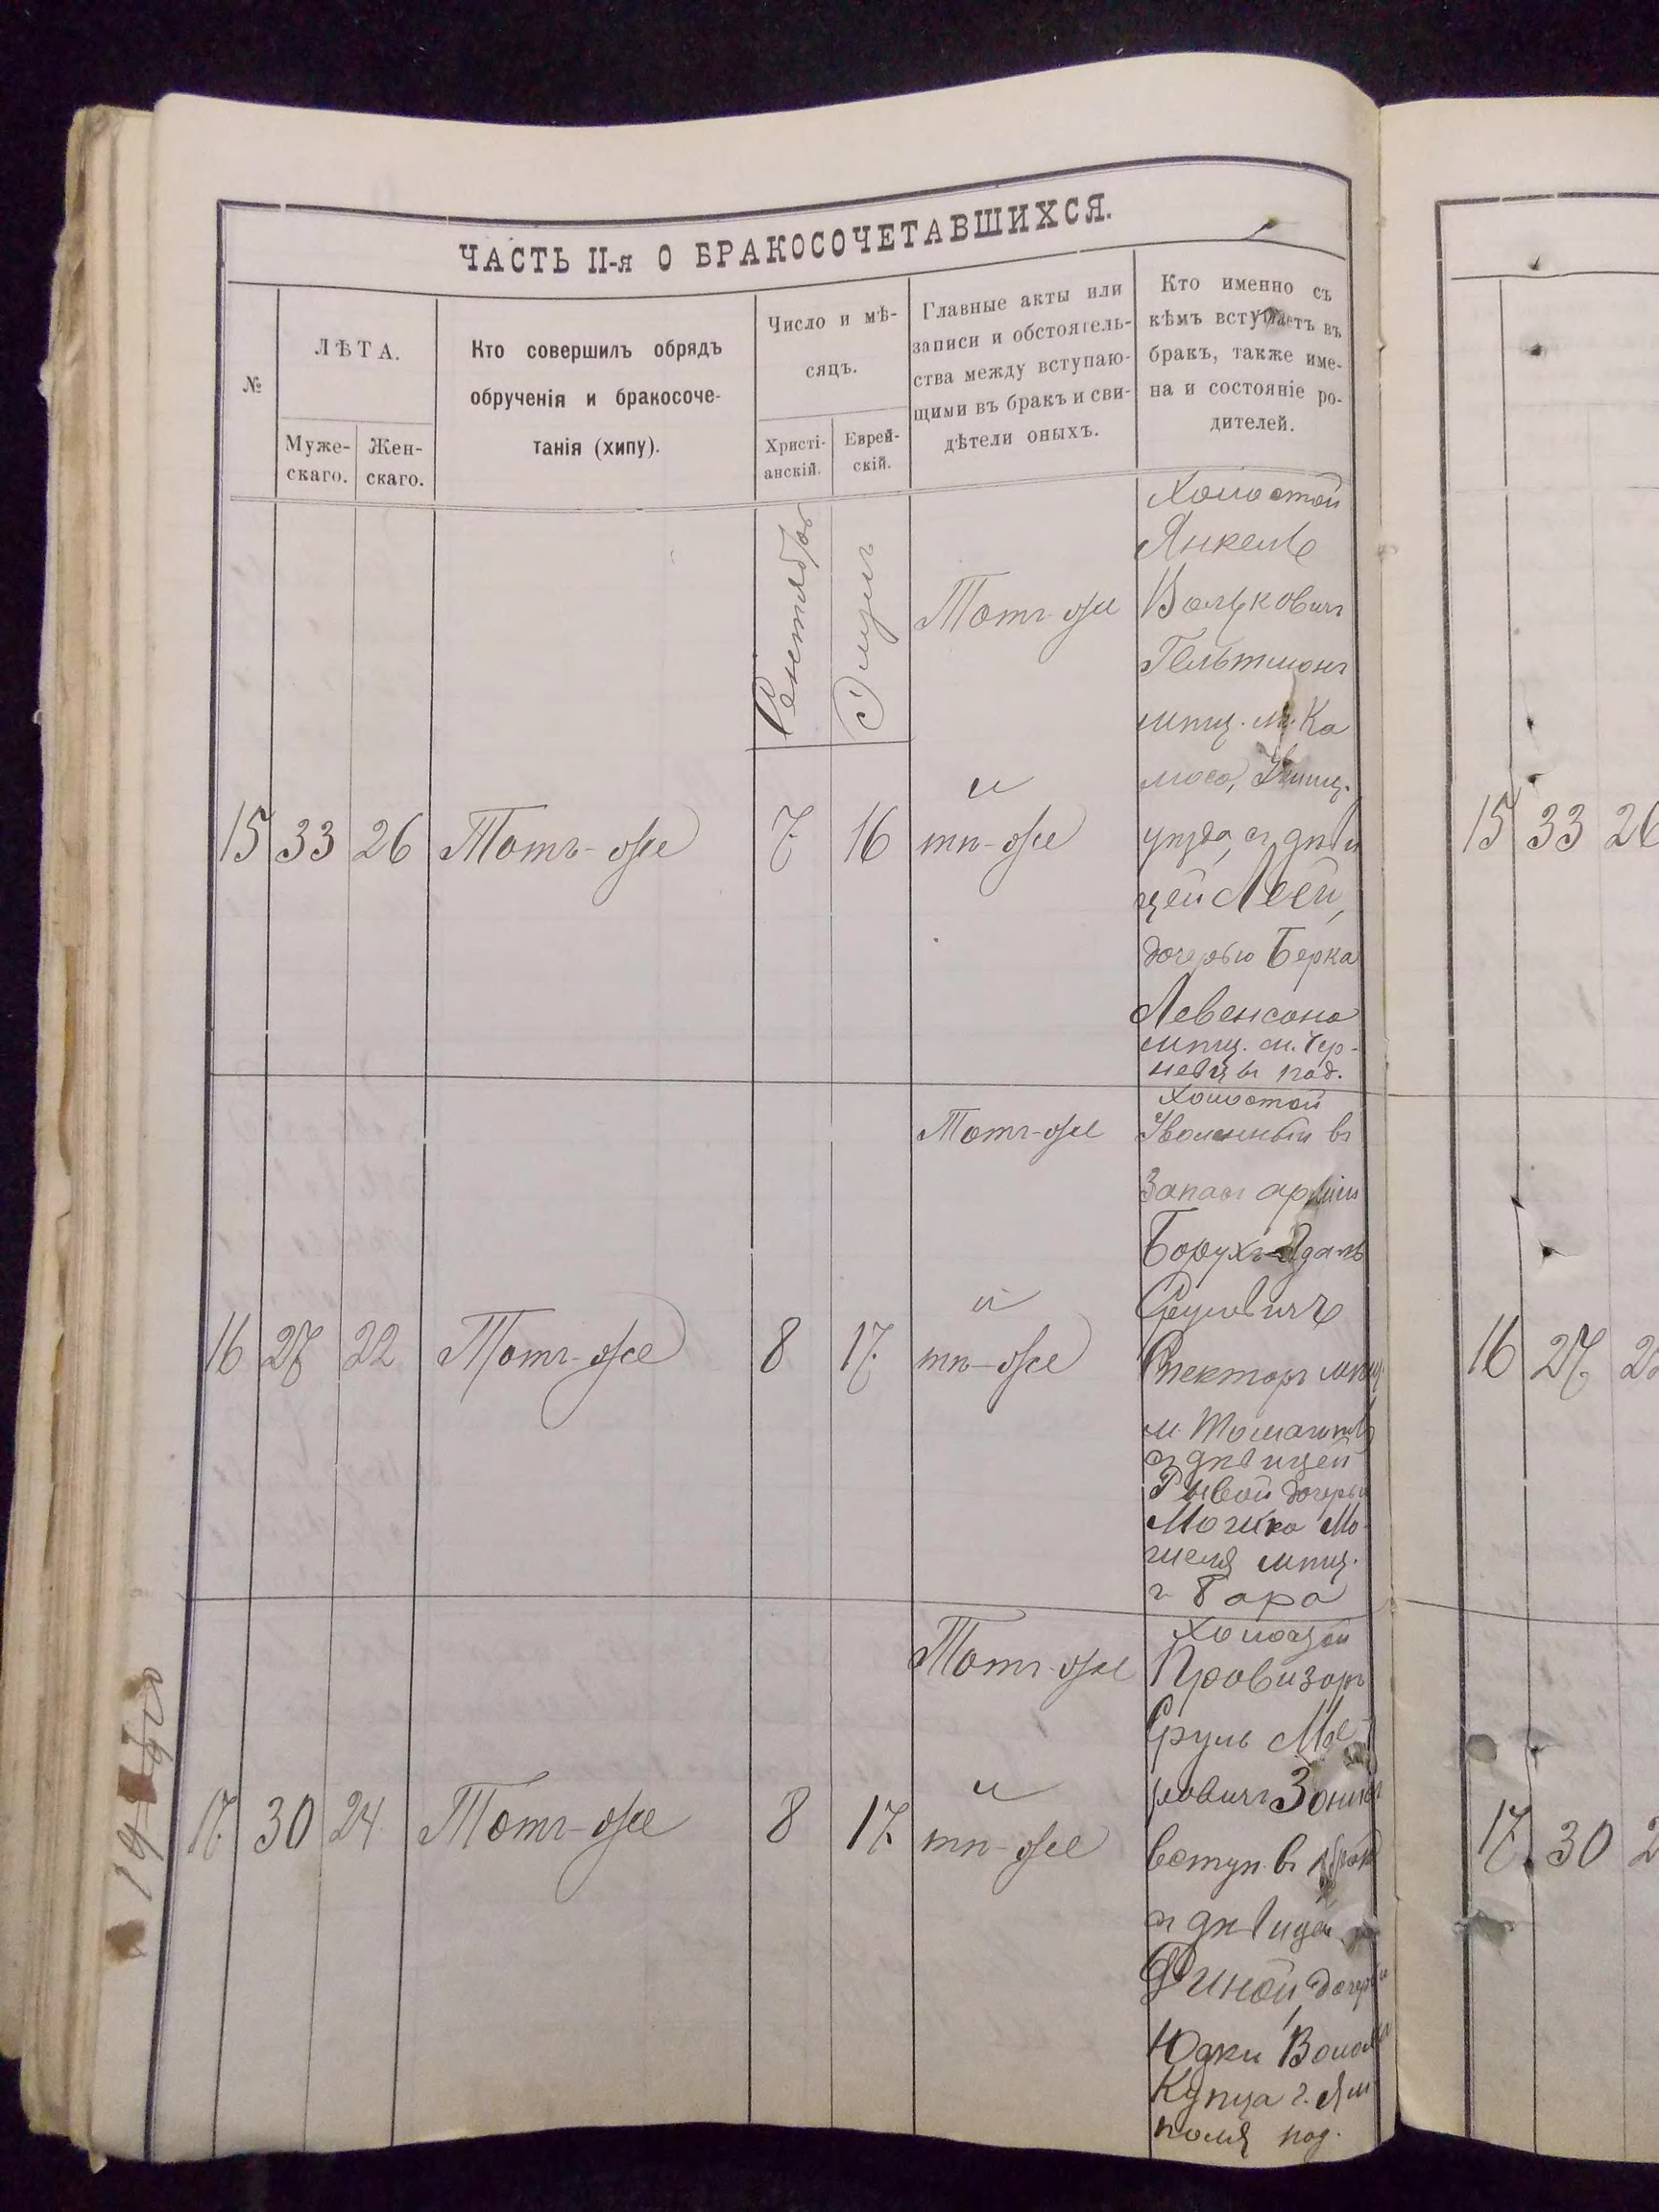 ЧАСТЬ II-я О БРАКОСОЧЕТАВШИХСЯ.
№
ЛѢТА.
Муже-
скаго.
Жен-
скаго.
Кто совершилъ обрядъ
обрученія и бракосоче-
танія (хипу).
Число и мѣ-
сяцъ.
Христі-
анскій.
Еврей-
скій.
Главные акты или
записи и обстоятель-
ства между вступаю-
щими въ бракъ и сви-
дѣтели оныхъ.
Кто именно съ
кѣмъ вступаетъ въ
бракъ, также име-
на и состояніе ро-
дителей.
Сентябрь
Элулъ
15 33 26 Тотъ-же 7 16
Тотъ-же
и
тѣ-же
Холостой
Янкель
Волькович
Гельтманъ
мѣщ. м. Ка
уѣзда, съ дѣви
цей Леей,
дочерью Берка
Левенсона
мѣщ. м. Чер-
невцы под.
16 27 22 Тотъ-же 8 17
Тотъ-же
и
тѣ-же
Холостой
Уволенный въ
Запасъ арміи
Борухъ
Сруловичъ
Спекторъ мѣщ
м. Томашполь
съ дѣвицей
Ривой дочерью
Мошка Мо
шеля мѣщ.
г. Бара
17 30 24 Тотъ-же 8 17
Тотъ-же
и
тѣ-же
Холостой
Провизоръ
Сруль Ме
вступ. въ бракъ
съ дѣвицей
Финой, дочерью
Юдки
Купца г. Ям
поля под.
15 33 26
16 27 2
17 30 2